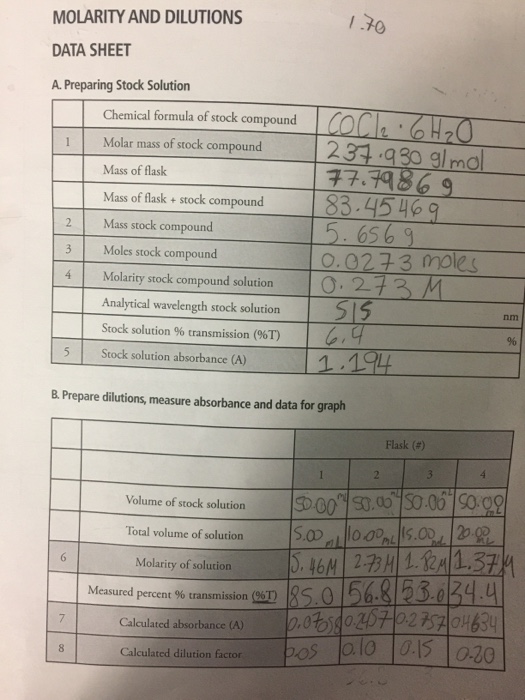 MOLARITY AND DILUTIONS
1.70
DATA SHEET
A. Preparing Stock Solution
Chemical formula of stock compound COCl2 · 6H2O
1 Molar mass of stock compound 237.930 g/mol
Mass of flask 77.7986 g
Mass of flask + stock compound 83.4546 g
2 Mass stock compound 5.656 g
3 Moles stock compound 0.0273 moles
4 Molarity stock compound solution 0.273 M
Analytical wavelength stock solution 515 nm
Stock solution % transmission (%T) 6.4 %
5 Stock solution absorbance (A) 1.194
B. Prepare dilutions, measure absorbance and data for graph
Flask (#)
1 2 3 4
Volume of stock solution 50.00 mL 50.00 mL 50.00 mL 50.00 mL
Total volume of solution 5.00 mL 10.00 mL 15.00 mL 20.00 mL
6 Molarity of solution 5.46M 2.73M 1.82M 1.37M
Measured percent % transmission (%T) 85.0 56.8 53.0 34.4
7 Calculated absorbance (A) 0.2757 0.4634
8 Calculated dilution factor 0.10 0.15 0.20